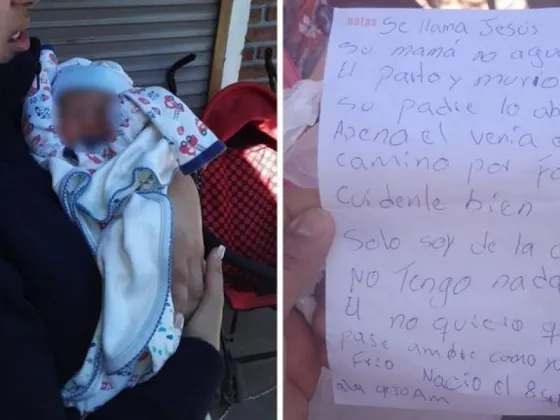 notas Se llama Jesús
Su mamá no agu
El parto y murio
Su padre lo a
Apena el venía
camino por f
Cuidenle bien
Solo soy de la c
NO Tengo nada
El no quiero q
pase ambre como
Frio Nacio el 8
9:30 AM